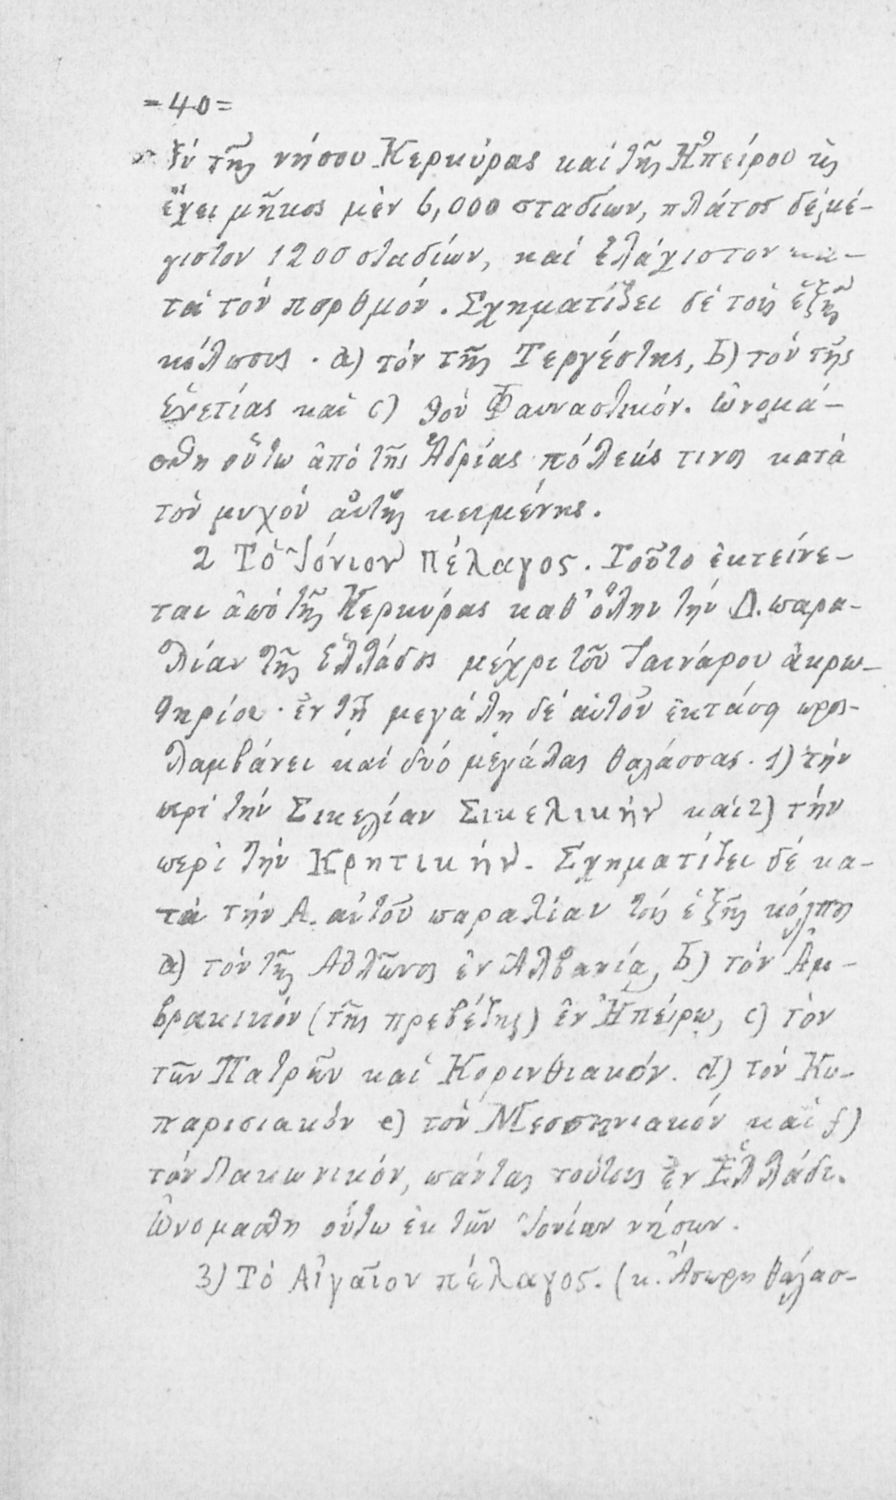 =40=
ξύ τῆς νήσου Κερκύρας καί τῆς Ἠπείρου κ̀
ἔχει μῆκος μὲν 6,000 σταδίων, πλάτος δέ μέ-
γιστον 1200 σταδίων, καί ἐλάχιστον κα-
τά τόν πορθμόν. Σχηματίζει δέ τούς ἑξῆς
κόλπους · a) τόν τῆς Τεργέστης, b) τόν τῆς
Ἑνετίας καί c) τόν Φαναστικόν. Ὠνομά-
σθη οὕτω ἀπό τῆς Ἀδρίας πόλεώς τινος κατά
τόν μυχόν αὐτῆς κειμένης.
2 Τὸ Ἰόνιον πέλαγος. Τοῦτο ἐκτείνε-
ται ἀπό τῆς Κερκύρας καθ' ὅλην τήν Δ. παρα-
λίαν τῆς Ἑλλάδος μέχρι τοῦ Ταινάρου ἀκρω-
τηρίου · ἐν τῇ μεγάλῃ δέ αὐτοῦ ἐκτάσῃ προσ-
λαμβάνει καί δυό μεγάλας θαλάσσας. 1) τήν
περί τήν Σικελίαν Σικελικήν καί 2) τήν
περί τήν Κρητικήν. Σχηματίζει δέ κα-
τά τήν Α. αὐτοῦ παραλίαν τούς ἑξῆς κόλπους
a) τόν τῆς Αὐλῶνος ἐν Ἀλβανίᾳ, b) τόν Ἀμ-
βρακικόν (τῆς πρεβέζης) ἐν Ἠπείρῳ, c) τόν
τῶν Πατρῶν καί Κορινθιακόν. d) τόν Κυ-
παρισιακόν e) τόν Μεσσηνιακόν καί f)
τόν Λακωνικόν, πάντας τούτους ἐν Ἑλλάδι.
Ὠνομασθη οὕτω ἐκ τῶν Ἰονίων νήσων.
3) Τό Αἰγαῖον πέλαγος. (κ. Ἄσπρη θάλασ-